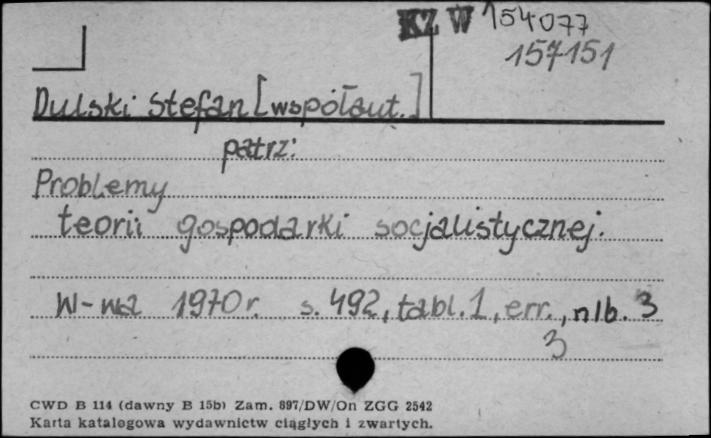 KZ W 154077
157151
Dulski Stefan [współaut.]
patrz:
Problemy
teorii gospodarki socjalistycznej.
W-wa 1970 r. s. 492, tabl. 1, err., nlb. 3
3
CWD B 114 (dawny B 15b) Zam. 897/DW/On ZGG 2542
Karta katalogowa wydawnictw ciągłych i zwartych.